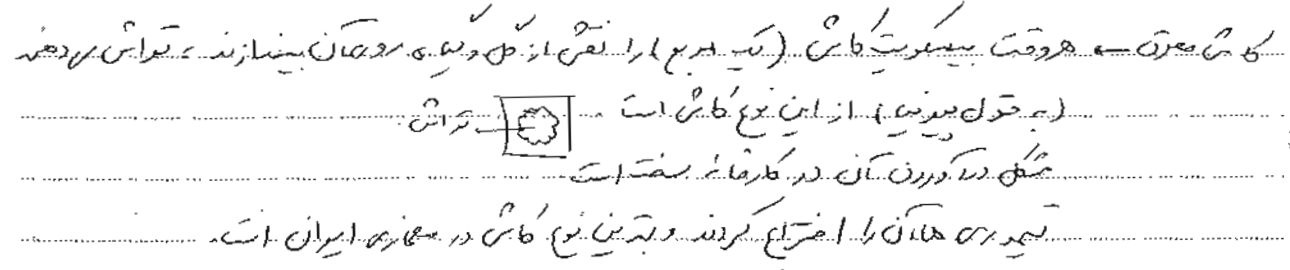 کاشی معرق → هر وقت بیسکویت کاشی (یک مربع) را نقشی از گل و گیاه روی آن بیندازند، تراش می‌دهند
(به قول پیرنیا) از این نوع کاشی است. تراش
شکل درآوردن آن در کارخانه سخت است
تیموری ها آن را اختراع کردند و بهترین نوع کاشی در معماری ایران است.